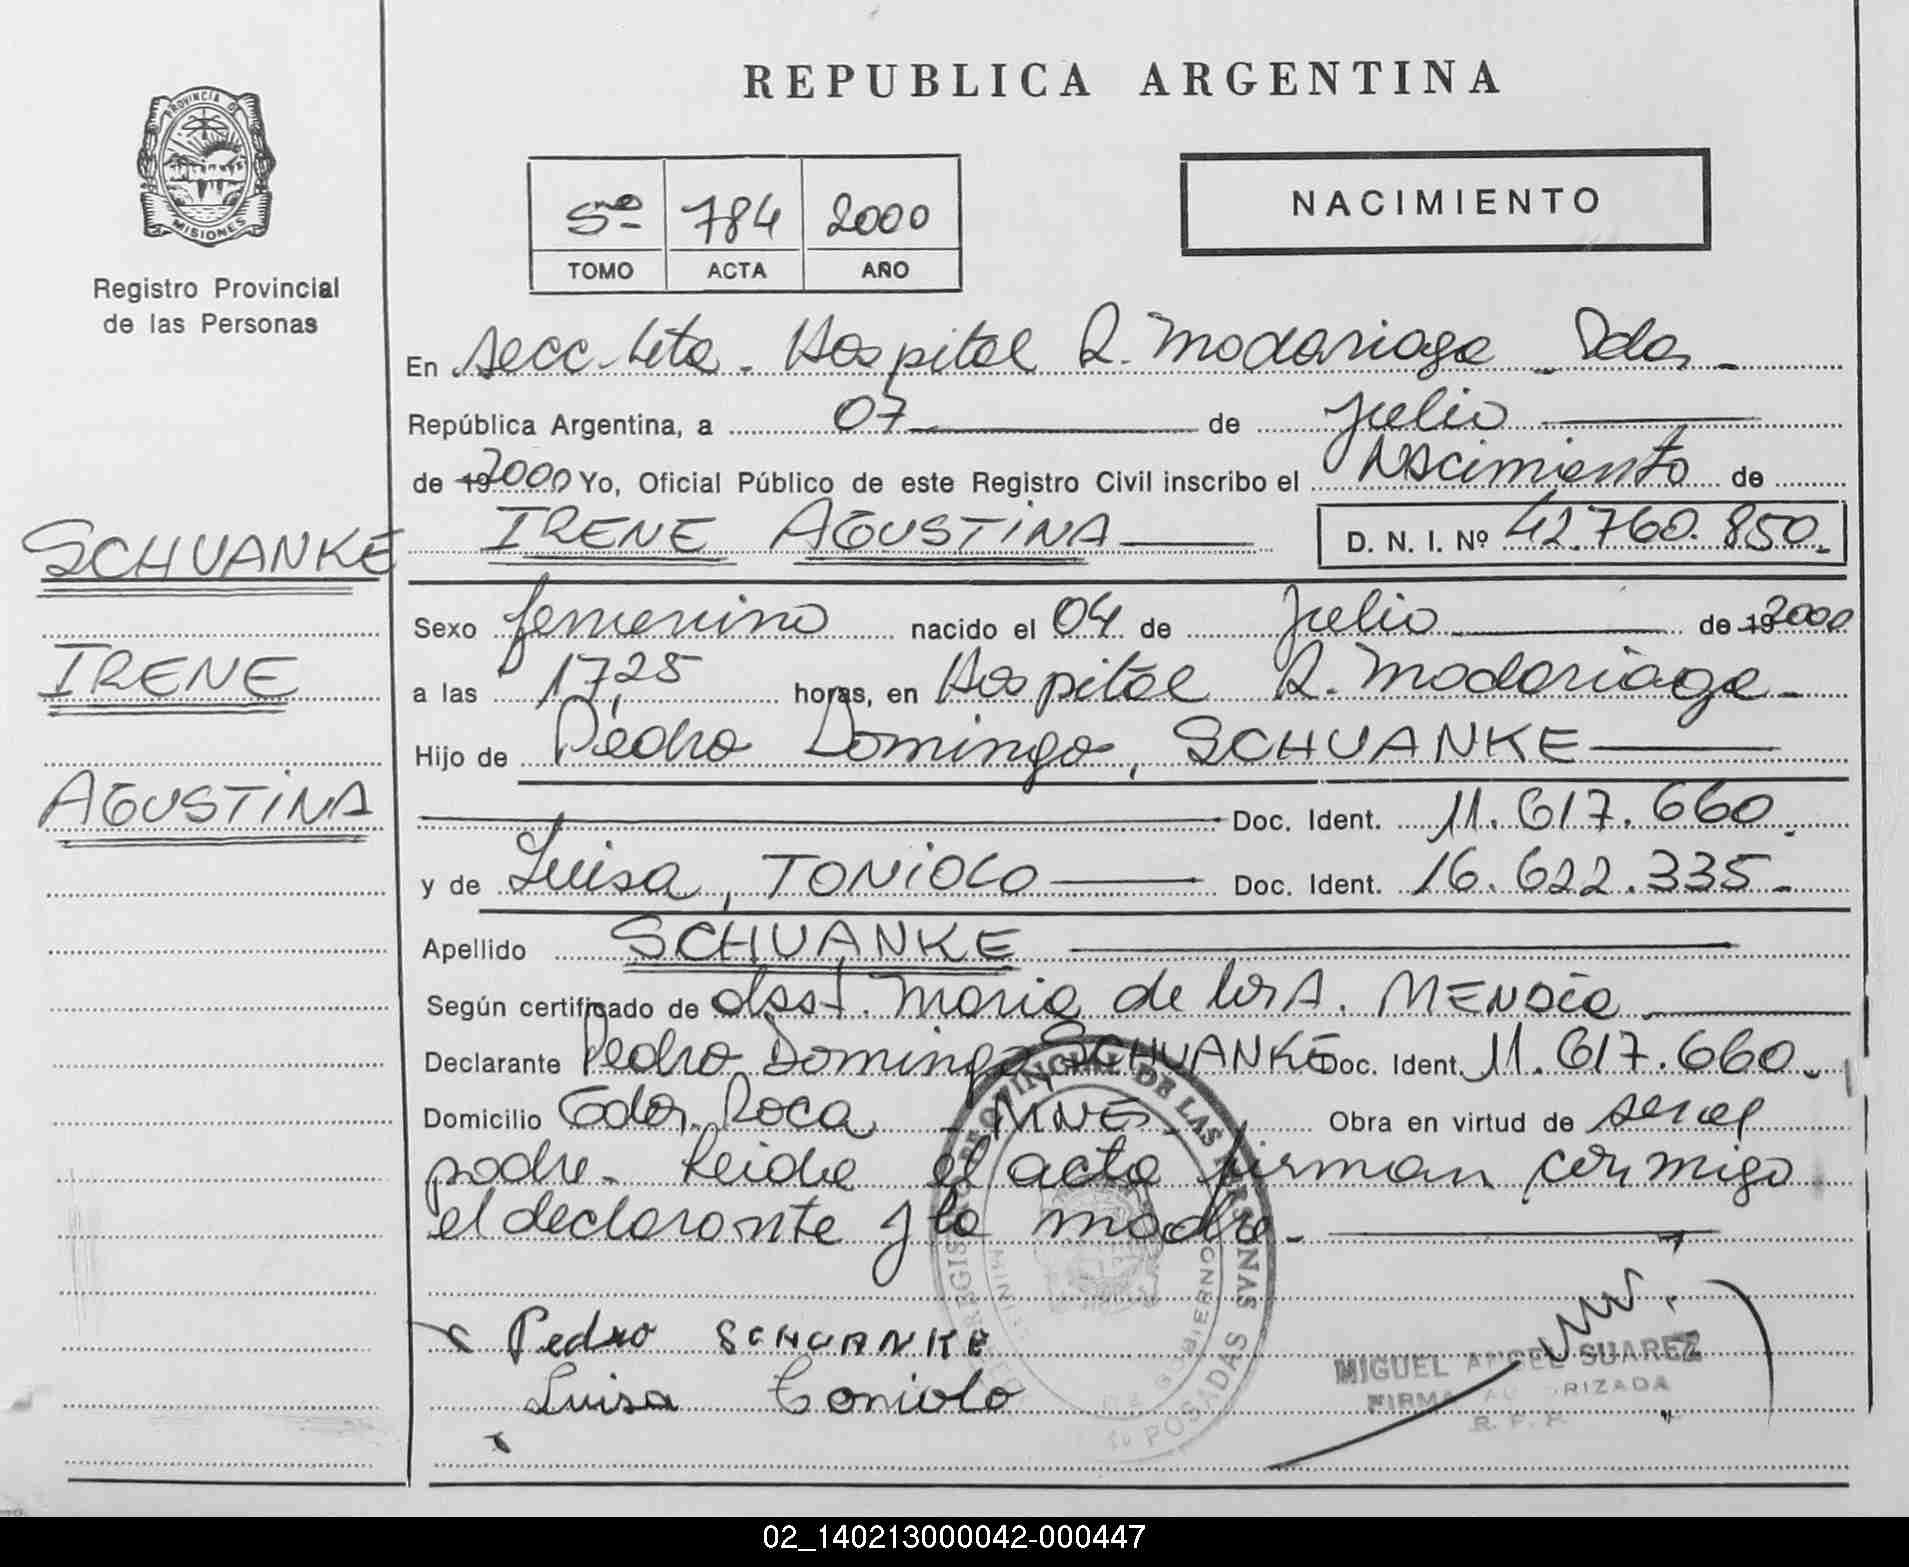 REPUBLICA ARGENTINA
PROVINCIA DE
MISIONES
Registro Provincial
de las Personas
5º 784 2000
TOMO ACTA AÑO
NACIMIENTO
En Secc. Hospital R. Madariaga Pdas
República Argentina, a 07 de Julio
de 19 2000 Yo, Oficial Público de este Registro Civil inscribo el Nacimiento de
SCHUANKE
IRENE
AGUSTINA
IRENE AGUSTINA D. N. I. Nº 42.760.850.
Sexo femenino nacido el 04 de Julio de 19 2000
a las 17,25 horas, en Hospital R. Madariaga
Hijo de Pedro Domingo, SCHUANKE
Doc. Ident. 11.617.660.
y de Luisa, TONIOLO Doc. Ident. 16.622.335
Apellido SCHUANKE
Según certificado de obst. Maria de los A. MENDEZ
Declarante Pedro Domingo, SCHUANKE Doc. Ident. 11.617.660.
Domicilio Gdor. Roca - MNES. Obra en virtud de ser el
padre. Leida el acta firman conmigo
el declarante y la madre.
Pedro SCHUANKE
Luisa Toniolo
MIGUEL ANGEL SUAREZ
FIRMA AUTORIZADA
R. P. P.
REGISTRO PROVINCIAL DE LAS PERSONAS
POSADAS
02_140213000042-000447